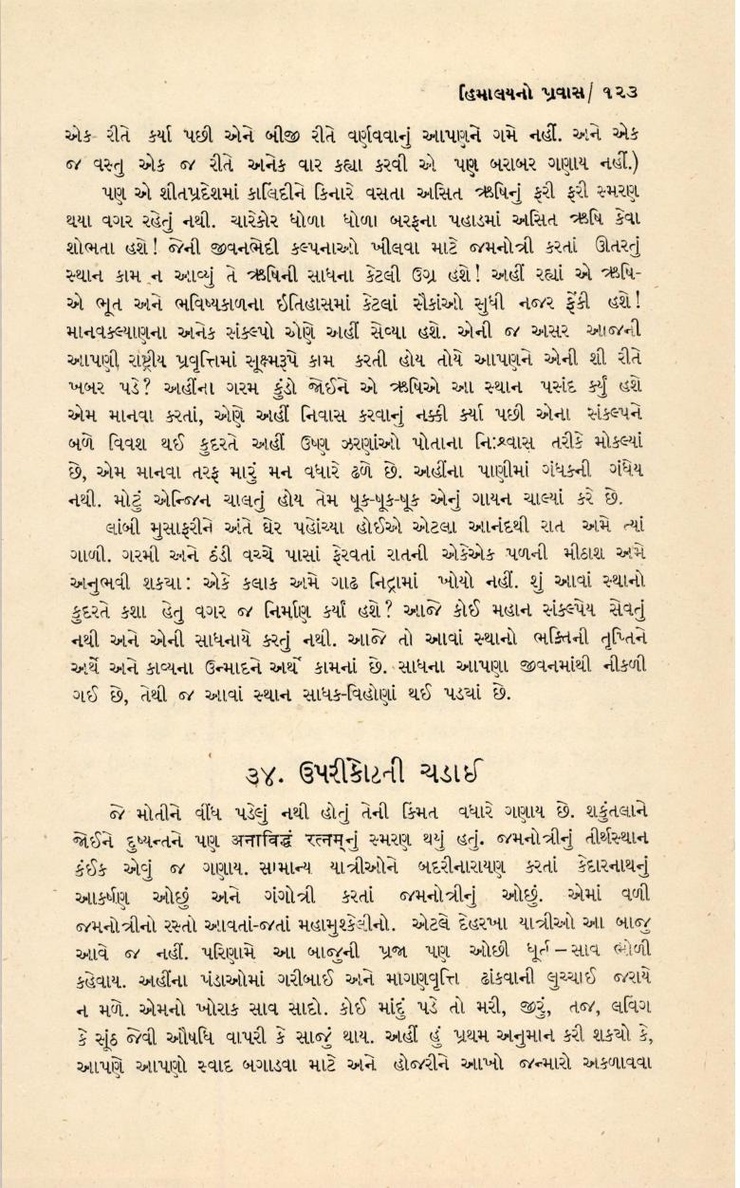 હિમાલયનો પ્રવાસ/ ૧૨૩
એક રીતે કર્યા પછી એને બીજી રીતે વર્ણવવાનું આપણને ગમે નહીં. અને એક
જ વસ્તુ એક જ રીતે અનેક વાર કહ્યા કરવી એ પણ બરાબર ગણાય નહીં.)
પણ એ શીતપ્રદેશમાં કાલિંદીને કિનારે વસતા અસિત ઋષિનું ફરી ફરી સ્મરણ
થયા વગર રહેતું નથી. ચારેકોર ધોળા ધોળા બરફના પહાડમાં અસિત ઋષિ કેવા
શોભતા હશે! જેની જીવનભેદી કલ્પનાઓ ખીલવા માટે જમનોત્રી કરતાં ઊતરતું
સ્થાન કામ ન આવ્યું તે ઋષિની સાધના કેટલી ઉગ્ર હશે! અહીં રહ્યાં એ ઋષિ-
એ ભૂત અને ભવિષ્યકાળના ઇતિહાસમાં કેટલાં સૈકાંઓ સુધી નજર ફેંકી હશે!
માનવકલ્યાણના અનેક સંકલ્પો એણે અહીં સેવ્યા હશે. એની જ અસર આજની
આપણી રાષ્ટ્રીય પ્રવૃત્તિમાં સૂક્ષ્મરૂપે કામ કરતી હોય તોયે આપણને એની શી રીતે
ખબર પડે? અહીંના ગરમ કુંડો જોઈને એ ઋષિએ આ સ્થાન પસંદ કર્યું હશે
એમ માનવા કરતાં, એણે અહીં નિવાસ કરવાનું નક્કી કર્યા પછી એના સંકલ્પને
બળે વિવશ થઈ કુદરતે અહીં ઉષ્ણ ઝરણાંઓ પોતાના નિ:શ્વાસ તરીકે મોકલ્યાં
છે, એમ માનવા તરફ મારું મન વધારે ઢળે છે. અહીંના પાણીમાં ગંધકની ગંધેય
નથી. મોટું એન્જિન ચાલતું હોય તેમ ષૂક-ષૂક-ષૂક એનું ગાયન ચાલ્યાં કરે છે.
લાંબી મુસાફરીને અંતે ઘેર પહોંચ્યા હોઈએ એટલા આનંદથી રાત અમે ત્યાં
ગાળી. ગરમી અને ઠંડી વચ્ચે પાસાં ફેરવતાં રાતની એકેએક પળની મીઠાશ અમે
અનુભવી શકયા: એકે કલાક અમે ગાઢ નિદ્રામાં ખોયો નહીં. શું આવાં સ્થાનો
કુદરતે કશા હેતુ વગર જ નિર્માણ કર્યાં હશે? આજે કોઈ મહાન સંકલ્પેય સેવતું
નથી અને એની સાધનાયે કરતું નથી. આજે તો આવાં સ્થાનો ભક્તિની તૃપ્તિને
અર્થે અને કાવ્યના ઉન્માદને અર્થે કામનાં છે. સાધના આપણા જીવનમાંથી નીકળી
ગઈ છે, તેથી જ આવાં સ્થાન સાધક-વિહોણાં થઈ પડયાં છે.
૩૪. ઉપરીકોટની ચડાઈ
જે મોતીને વીંધ પડેલું નથી હોતું તેની કિંમત વધારે ગણાય છે. શકુંતલાને
જોઈને દુષ્યન્તને પણ अनाविद्धं रत्नम्નું સ્મરણ થયું હતું. જમનોત્રીનું તીર્થસ્થાન
કંઈક એવું જ ગણાય. સામાન્ય યાત્રીઓને બદરીનારાયણ કરતાં કેદારનાથનું
આકર્ષણ ઓછું અને ગંગોત્રી કરતાં જમનોત્રીનું ઓછું. એમાં વળી
જમનોત્રીનો રસ્તો આવતાં-જતાં મહામુશ્કેલીનો. એટલે દેહરખા યાત્રીઓ આ બાજુ
આવે જ નહીં. પરિણામે આ બાજુની પ્રજા પણ ઓછી ધૂર્ત – સાવ ભોળી
કહેવાય. અહીંના પંડાઓમાં ગરીબાઈ અને માગણવૃત્તિ ઢાંકવાની લુચ્ચાઈ જરાયે
ન મળે. એમનો ખોરાક સાવ સાદો. કોઈ માંદું પડે તો મરી, જીરું, તજ, લવિંગ
કે સૂંઠ જેવી ઔષધિ વાપરી કે સાજું થાય. અહીં હું પ્રથમ અનુમાન કરી શકયો કે,
આપણે આપણો સ્વાદ બગાડવા માટે અને હોજરીને આખો જન્મારો અકળાવવા